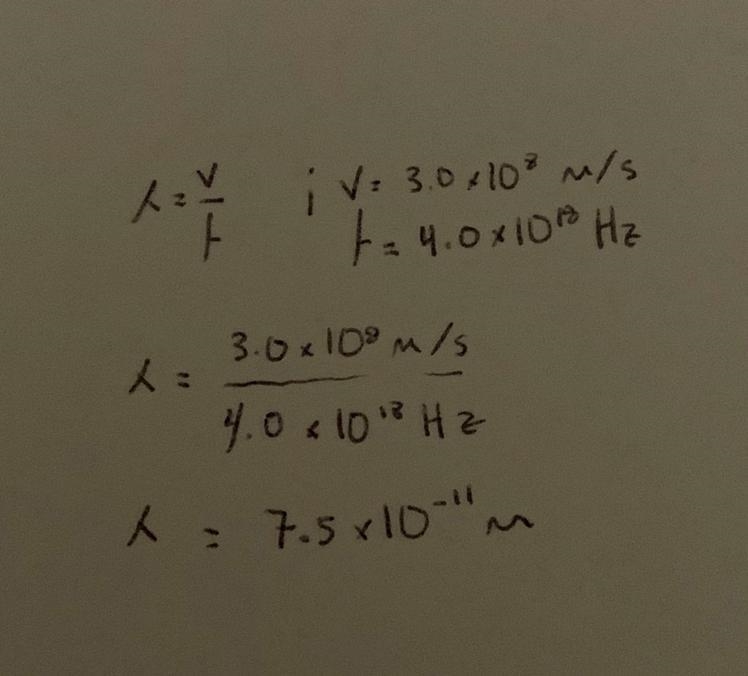 λ = v/f ; v = 3.0 × 10⁸ m/s
f = 4.0 × 10¹⁸ Hz
λ = 3.0 × 10⁸ m/s
4.0 × 10¹⁸ Hz
λ = 7.5 × 10⁻¹¹ m